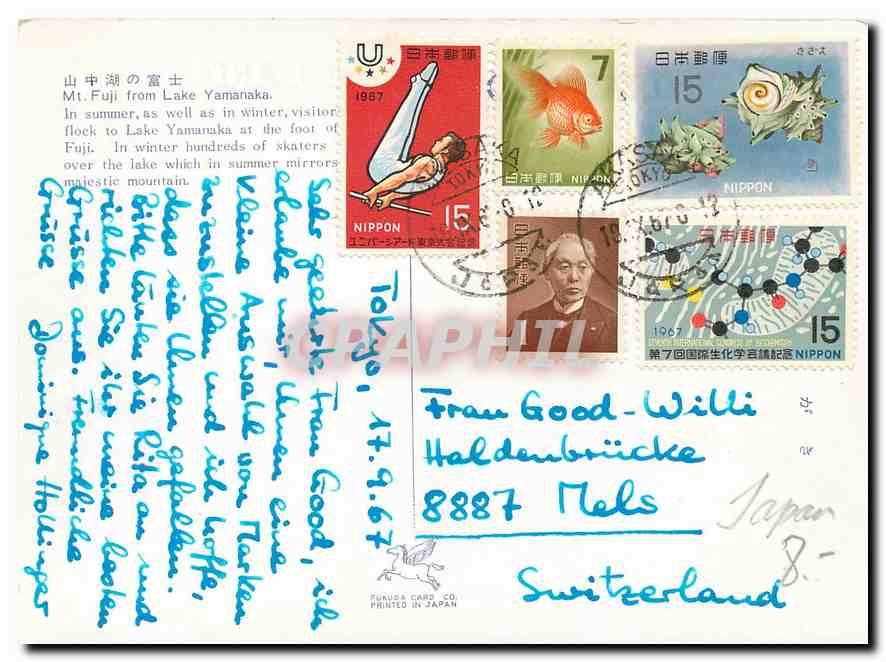 山中湖の富士
Mt. Fuji from Lake Yamanaka.
In summer, as well as in winter, visitor
flock to Lake Yamanaka at the foot of
Fuji. In winter hundreds of skaters
over the lake which in summer mirrors
majestic mountain.
U
日本郵便
1967
15
NIPPON
ユニバーシアード東京大会記念
7
日本郵便
NIPPON
日本郵便
さざえ
15
NIPPON
日本郵便
1
日本郵便
1967
SEVENTH INTERNATIONAL CONGRESS OF BIOCHEMISTRY
15
第7回国際生化学会議記念 NIPPON
TOKYO
JAPAN
TOKYO
18.IX.67.0-12
JAPAN
Tokyo, 17.9.67
Sehr geehrte Frau Good, ich
erlaube mir, Ihnen eine
kleine Auswahl von Marken
zuzustellen und ich hoffe,
dass sie Ihnen gefallen.
Bitte läuten Sie Rita an und
richten Sie ihr meine besten
Grüsse aus. Freundliche
Grüsse
Dominique Hollinger
Frau Good-Willi
Haldenbrücke
8887 Mels
Switzerland
がき
Japan
8.-
FUKUDA CARD CO.
PRINTED IN JAPAN
CPAPHIL